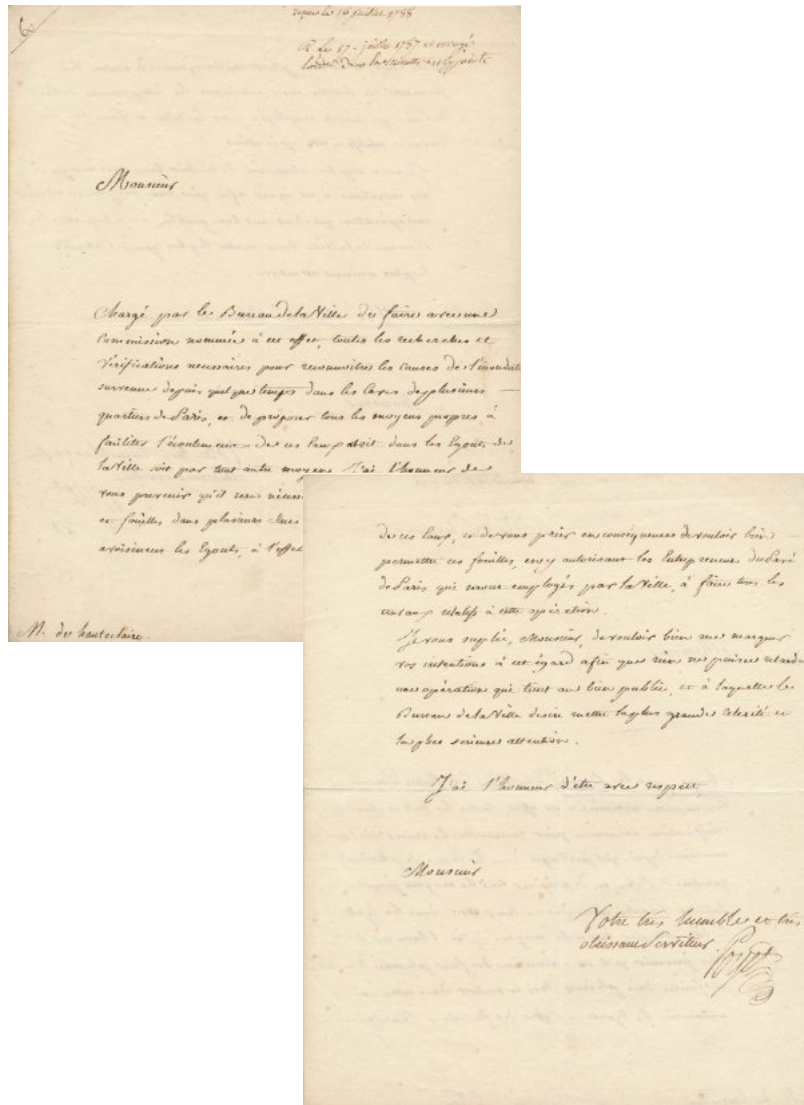 reçue le 16 juillet 1788
R. le 17. juillet 1787 et envoyé
l'ordre dans la minute est cy jointe
Monsieur
Chargé par le Bureau de la Ville de faire avec une
Commission nommée à cet effet, toutes les recherches et
Vérifications necessaires pour reconnoitre les causes de l'inondati
survenue depuis quelque temps dans les Caves de plusieurs
quartiers de Paris, et de proposer tous les moyens propres à
faciliter l'écoulement de ces Eaux soit dans les Egouts de
la Ville soit par tout autre moyen. J'ai l'honneur de
vous prevenir qu'il sera néces
et fouilles dans plusieurs Rues
avoisinent les Egouts, à l'effet
M. de hauteclaire.
de ces Eaux, et de vous prier en conséquence de vouloir bien
permettre ces fouilles, en y autorisant les Entrepreneurs du Pavé
de Paris qui seront employés par la Ville, à faire tous les
travaux relatifs à cette opération.
Je vous supplie, Monsieur, de vouloir bien me marquer
vos intentions à cet égard afin que rien ne puisse retarde
une opération qui tient au bien public, et à laquelle le
Bureau de la Ville desire mettre la plus grande célérité et
la plus serieuse attention.
J'ai l'honneur d'être avec respect
Monsieur
Votre très humble et très
obeissant Serviteur.
Poyet